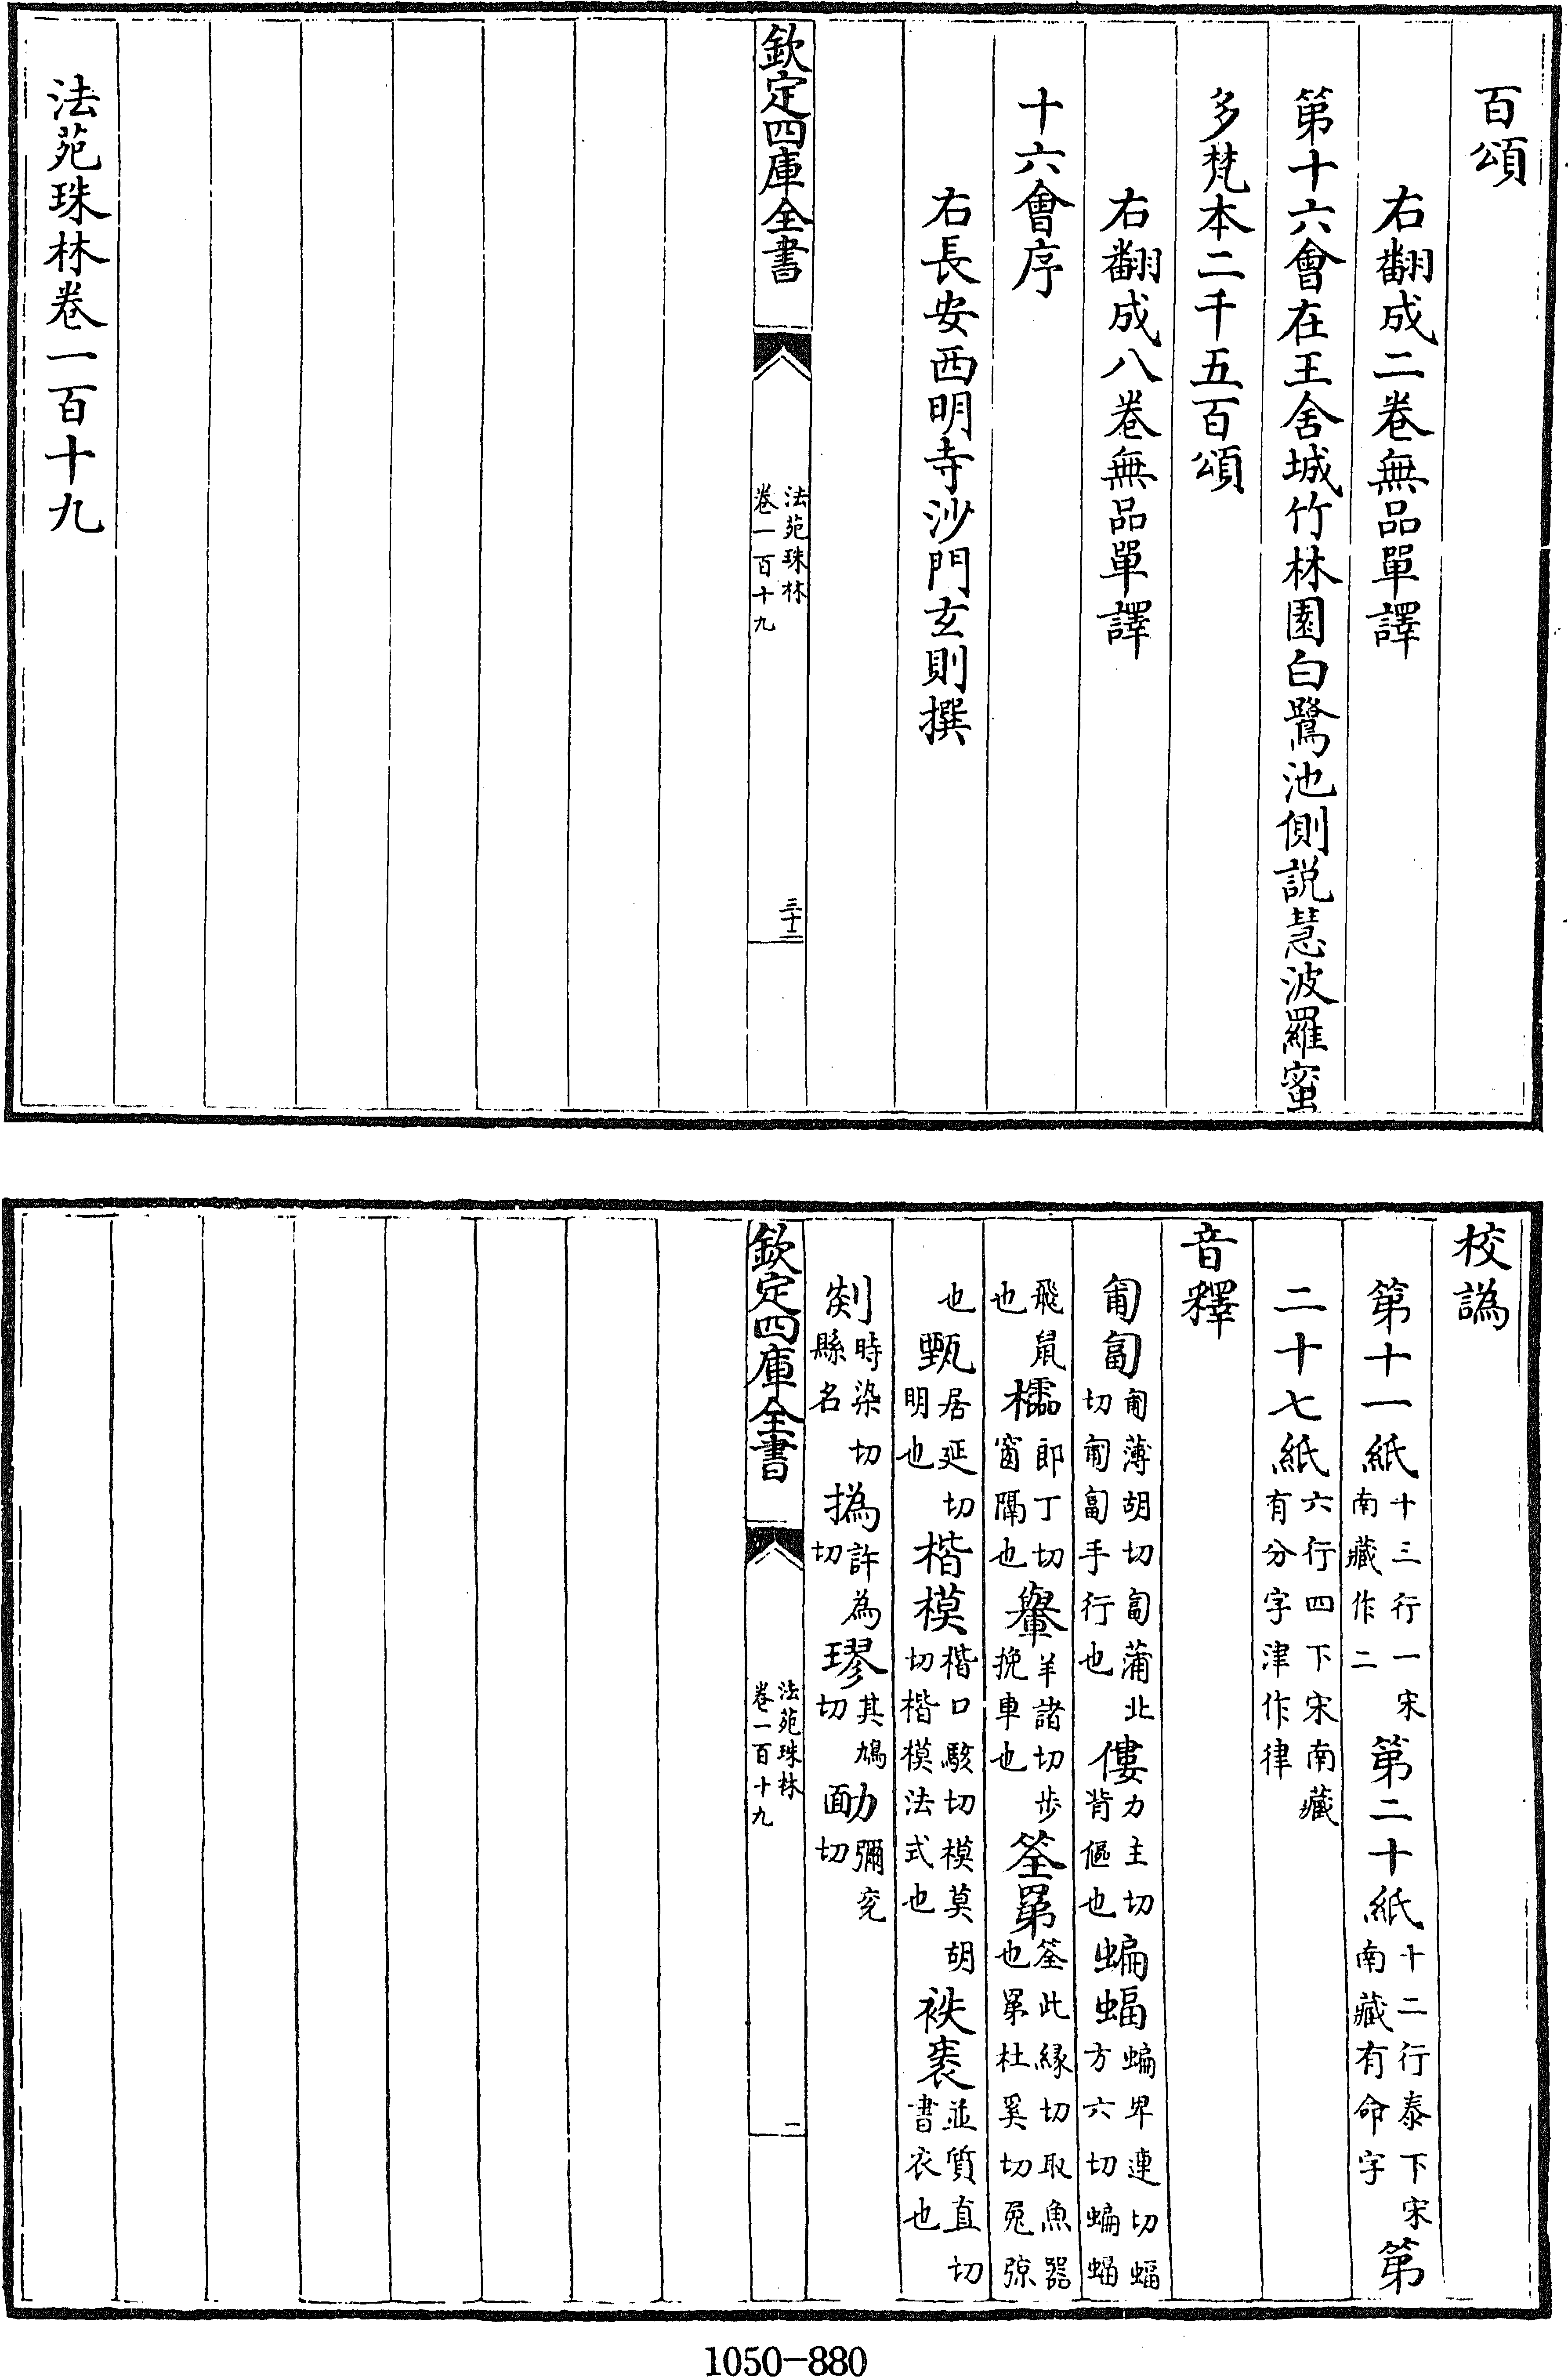 百頌
右翻成二卷無品單譯
第十六會在王舍城竹林園白鷺池側説慧波羅蜜
多梵本二千五百頌
右翻成八卷無品單譯
十六會序
右長安西明寺沙門玄則撰
欽定四庫全書
法苑珠林
卷一百十九
三十二
法苑珠林卷一百十九
校譌
第十一紙十三行一宋南藏作二第二十紙十二行泰下宋南藏有命字第
二十七紙六行四下宋南藏有分字津作律
音釋
匍匐匍薄胡切匐蒲北切匍匐手行也僂力主切背傴也蝙蝠蝙卑連切蝠方六切蝙蝠
飛鼠也櫺郎丁切窗隔也轝羊諸切步挽車也筌罤筌此緣切取魚器也罤杜奚切兎弶
也甄居延切明也楷模楷口駭切模莫胡切楷模法式也袟袠並質直切書衣也
剡時染切縣名撝許為切璆其鳩切勔彌兖切
欽定四庫全書
法苑珠林
卷一百十九
二
1050-880